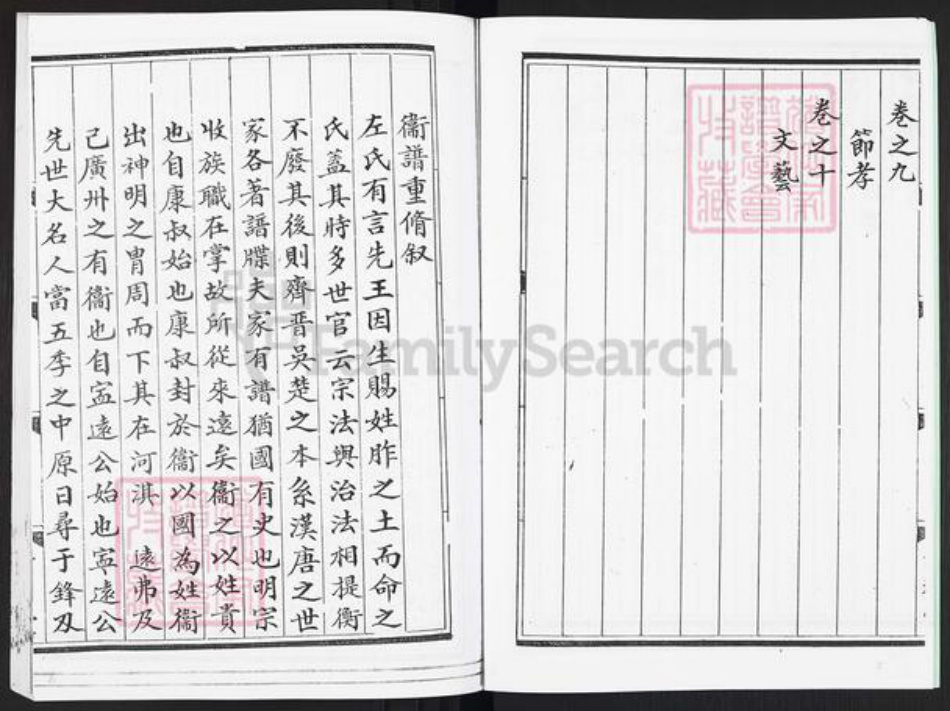 卷之九
節孝
卷之十
文藝
衞譜重脩叙
左氏有言先王因生賜姓胙之土而命之
氏蓋其時多世官云宗法與治法相提衡
不廢其後則齊晉吳楚之本系漢唐之世
家各著譜牒夫家有譜猶國有史也明宗
收族職在掌故所從來遠矣衞之以姓貴
也自康叔始也康叔封於衞以國為姓衞
出神明之冑周而下其在河淇 遠弗及
己廣州之有衞也自寍遠公始也寍遠公
先世大名人當五季之中原日尋于鋒刄
FamilySearch